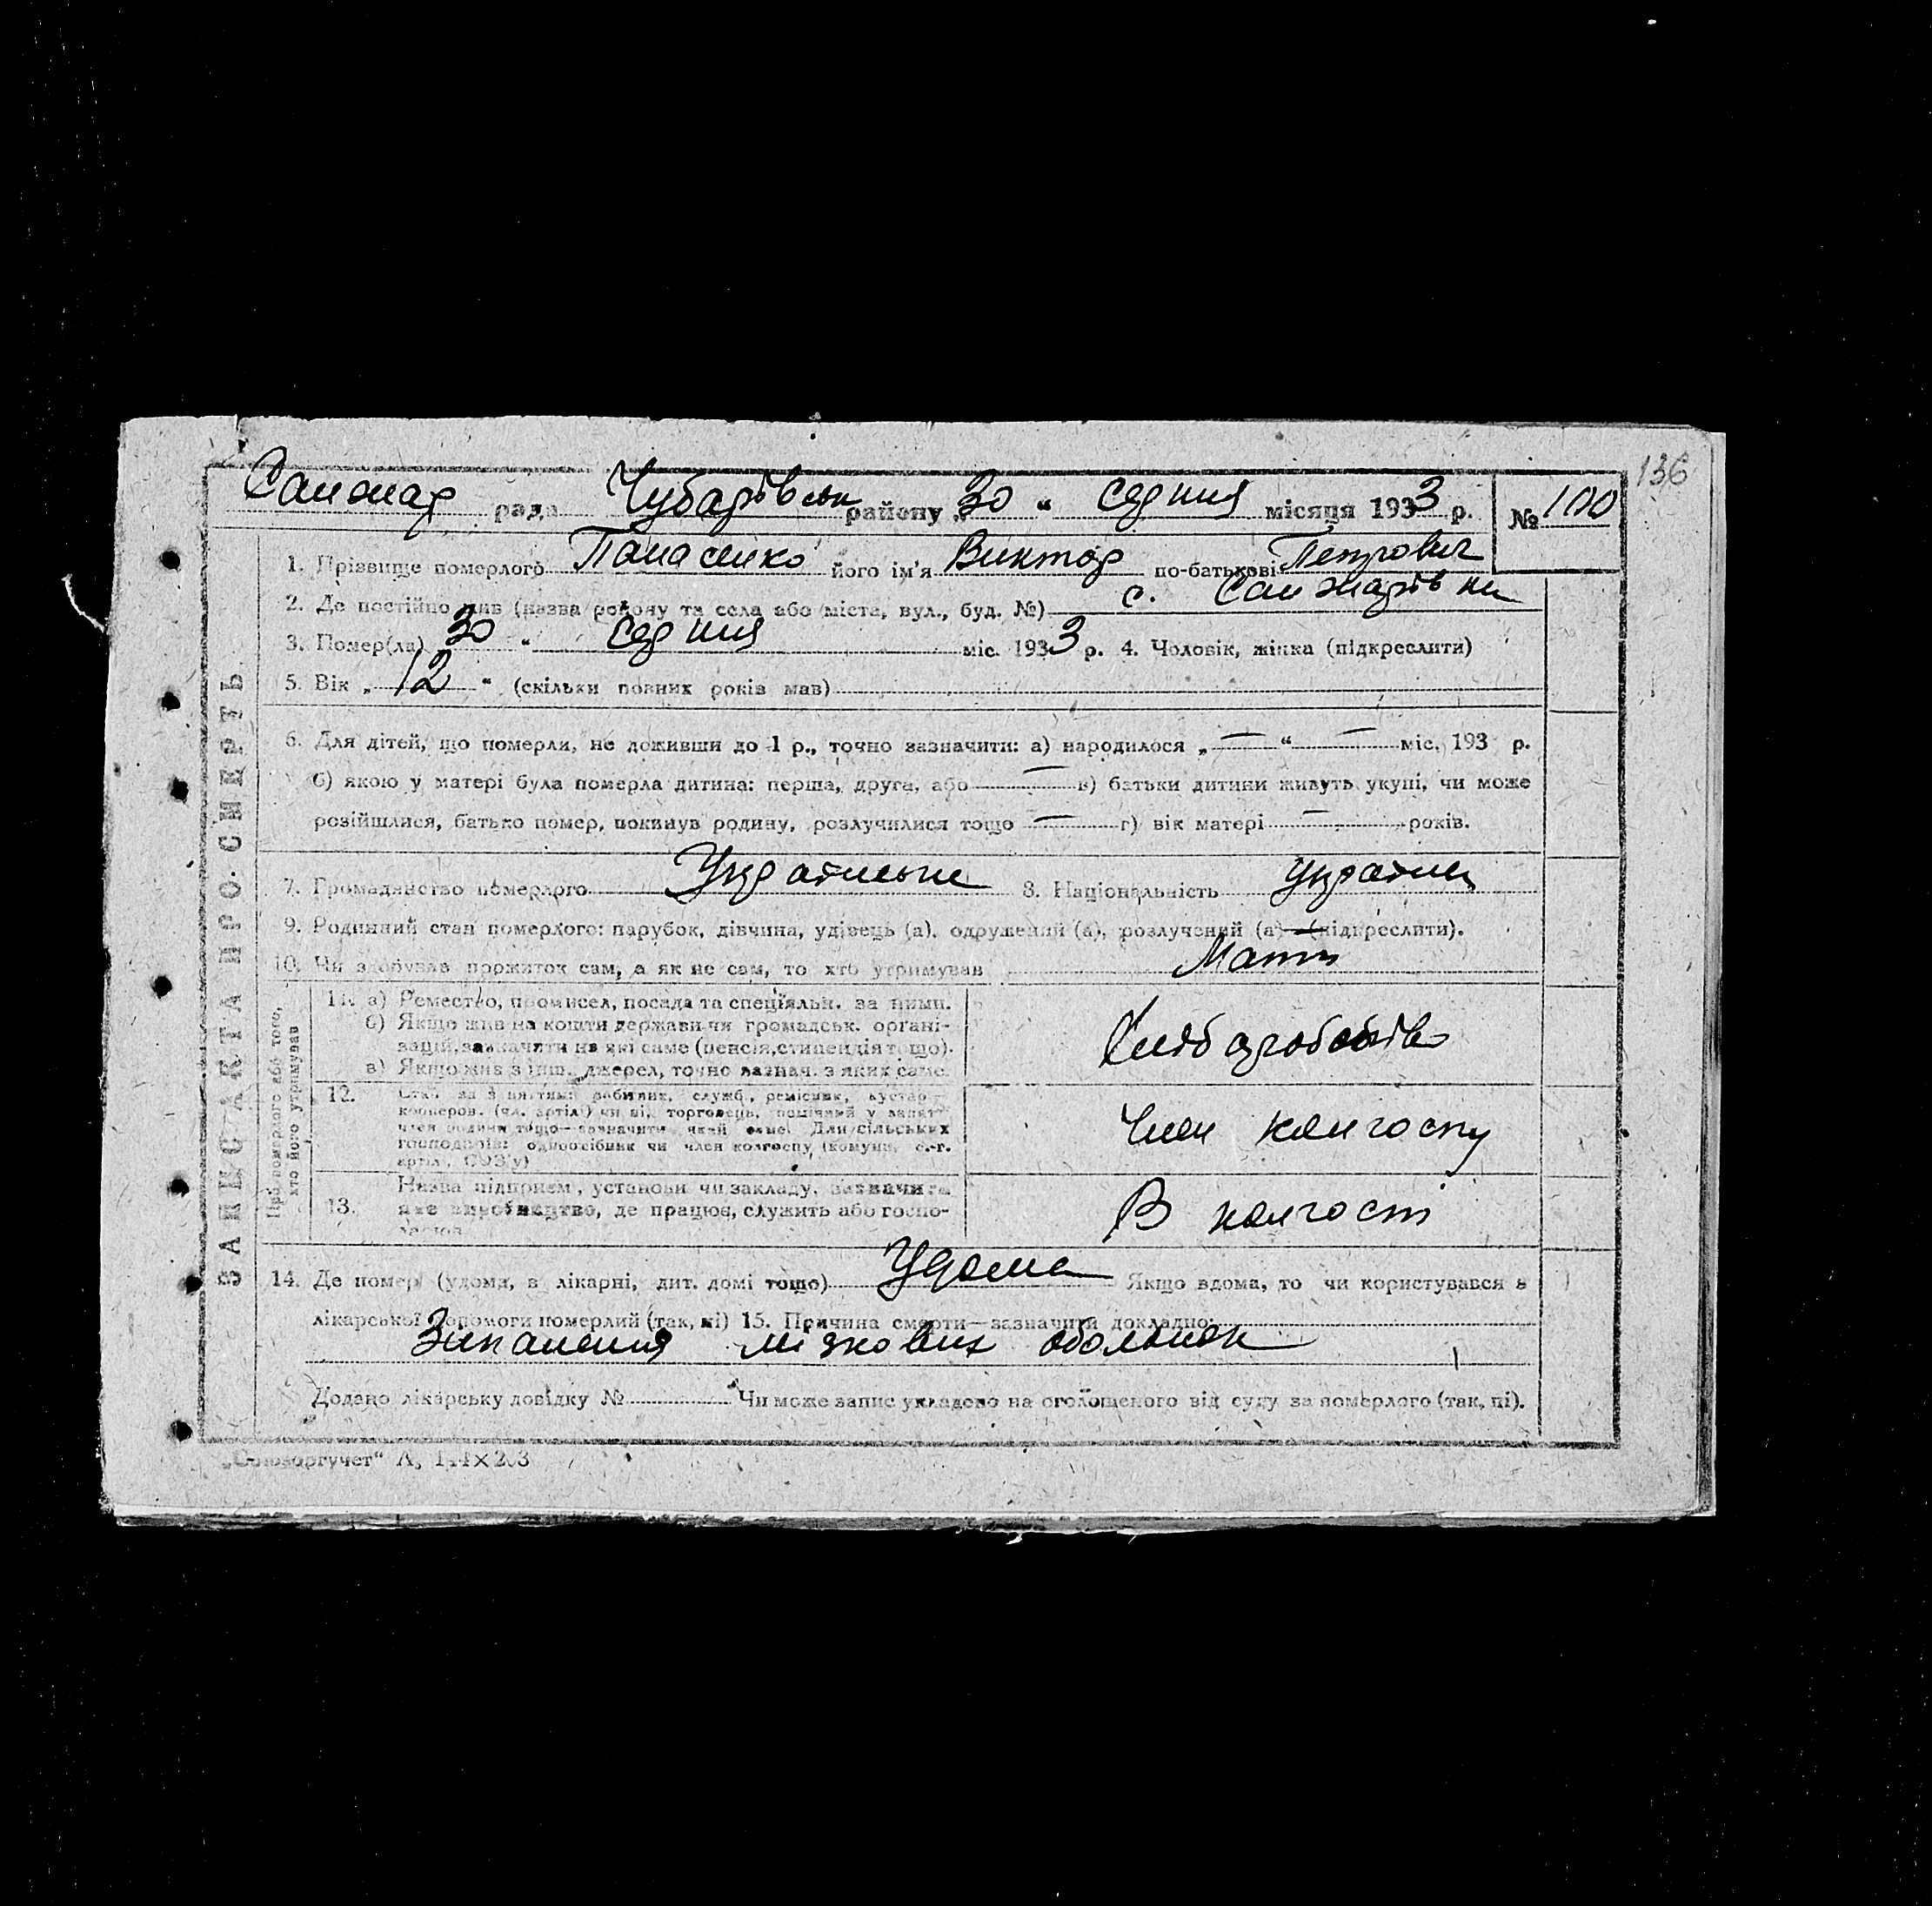 136
Санжар рада Чубарівськ району „30“ серпня місяця 1933 р. № 100
1. Прізвище померлого Панасенко його ім'я Виктор по-батькові Петрович
2. Де постійно жив (назва району та села або міста, вул., буд. №) с. Санжарівка
3. Помер(ла) 30 “ серпня міс. 1933 р. 4. Чоловік, жінка (підкреслити)
5. Вік „ 12 “ (скільки повних років мав)
6. Для дітей, що померли, не доживши до 1 р., точно зазначити: а) народилося „ — “ — міс. 193 р.
б) якою у матері була померла дитина: перша, друга, або — в) батьки дитини живуть укупі, чи може
розійшлися, батько помер, покинув родину, розлучилися тощо — г) вік матері — років.
7. Громадянство померлого Українське 8. Національність українец
9. Родинний стан померлого: парубок, дівчина, удівець (а), одружений (а), розлучений (а) — (підкреслити).
10. Чи здобував прожиток сам, а як не сам, то хто утримував Мати
ЗАПИС АКТА ПРО СМЕРТЬ
Про померлого або того,
хто його утримував
11. а) Ремество, промисел, посада та спеціяльн. за ними.
б) Якщо жив на кошти держави чи громадськ. органі-
зацій, зазначити на які саме (пенсія, стипендія тощо).
в) Якщо жив з інш. джерел, точно зазнач. з яких саме.
Хліборобство
12. робітник, служб., ремісник, кустар
кооперов. (чл. артілі) чи ні, торговець,
член родини тощо—зазначити який саме. Для сільських
господарів: одноосібник чи член колгоспу (комуни, с.-г.
артілі, СОЗ'у)
Член колгоспу
13. Назва підприєм., установи чи закладу, зазначити
яке виробництво, де працює, служить або госпо-
В колгоспі
14. Де помер (удома, в лікарні, дит. домі тощо) Удома Якщо вдома, то чи користувався з
лікарської допомоги померлий (так, ні) 15. Причина смерти—зазначити докладно:
Запалення мізкових оболонок
Додано лікарську довідку № Чи може запис укладено на оголошеного від суду за померлого (так, ні).